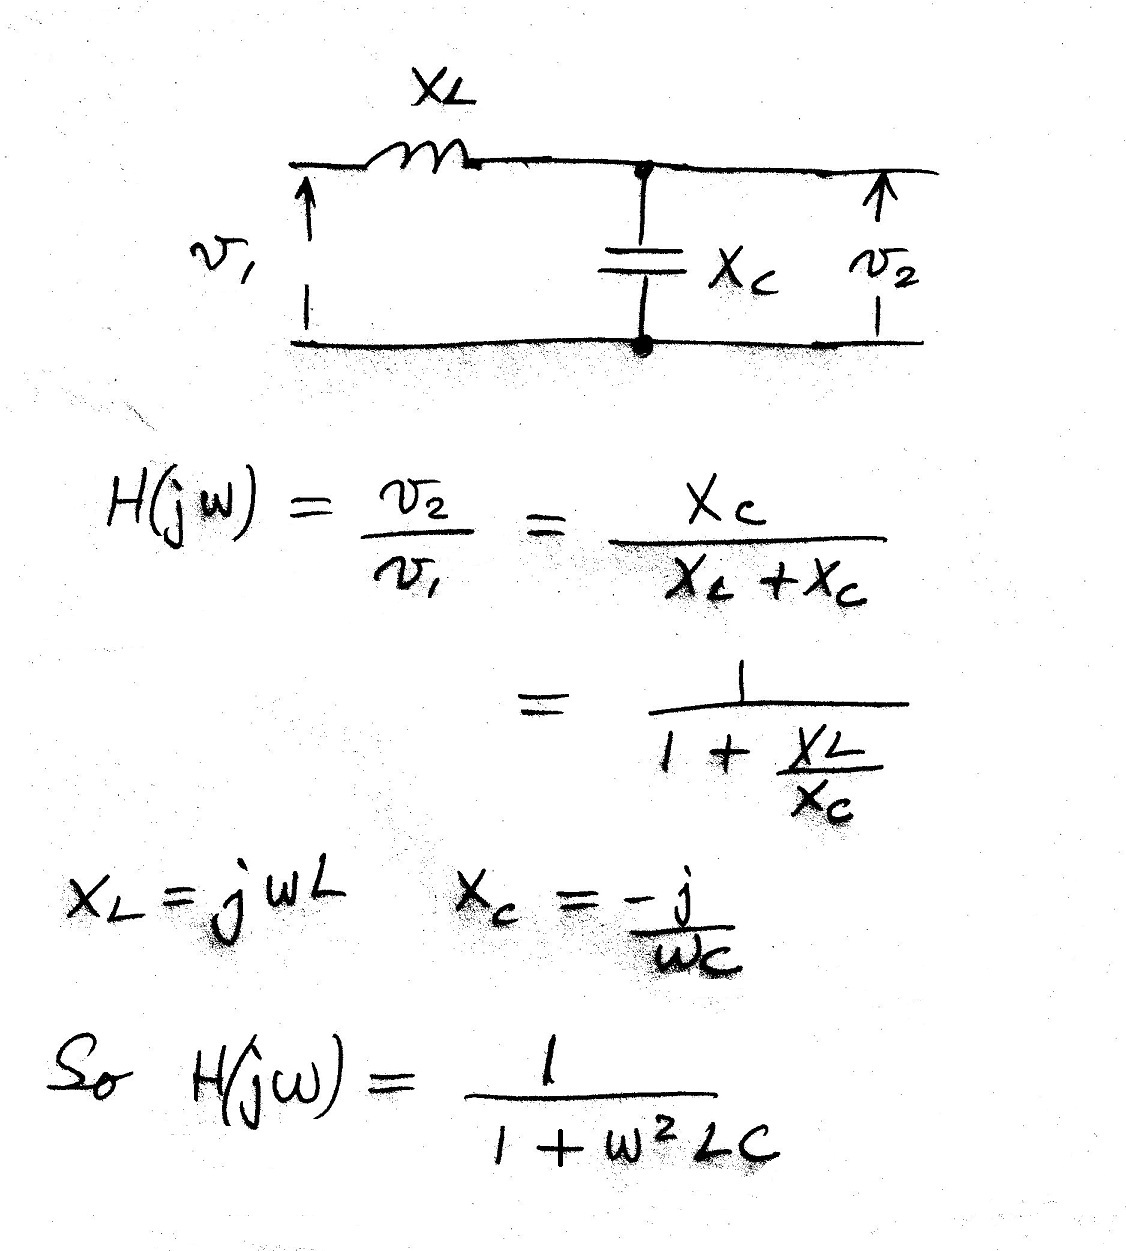 XL
v₁ Xc v₂
H(jω) = v₂/v₁ = Xc/(XL + Xc)
= 1/(1 + XL/Xc)
XL = jωL Xc = -j/ωC
So H(jω) = 1/(1 + ω²LC)